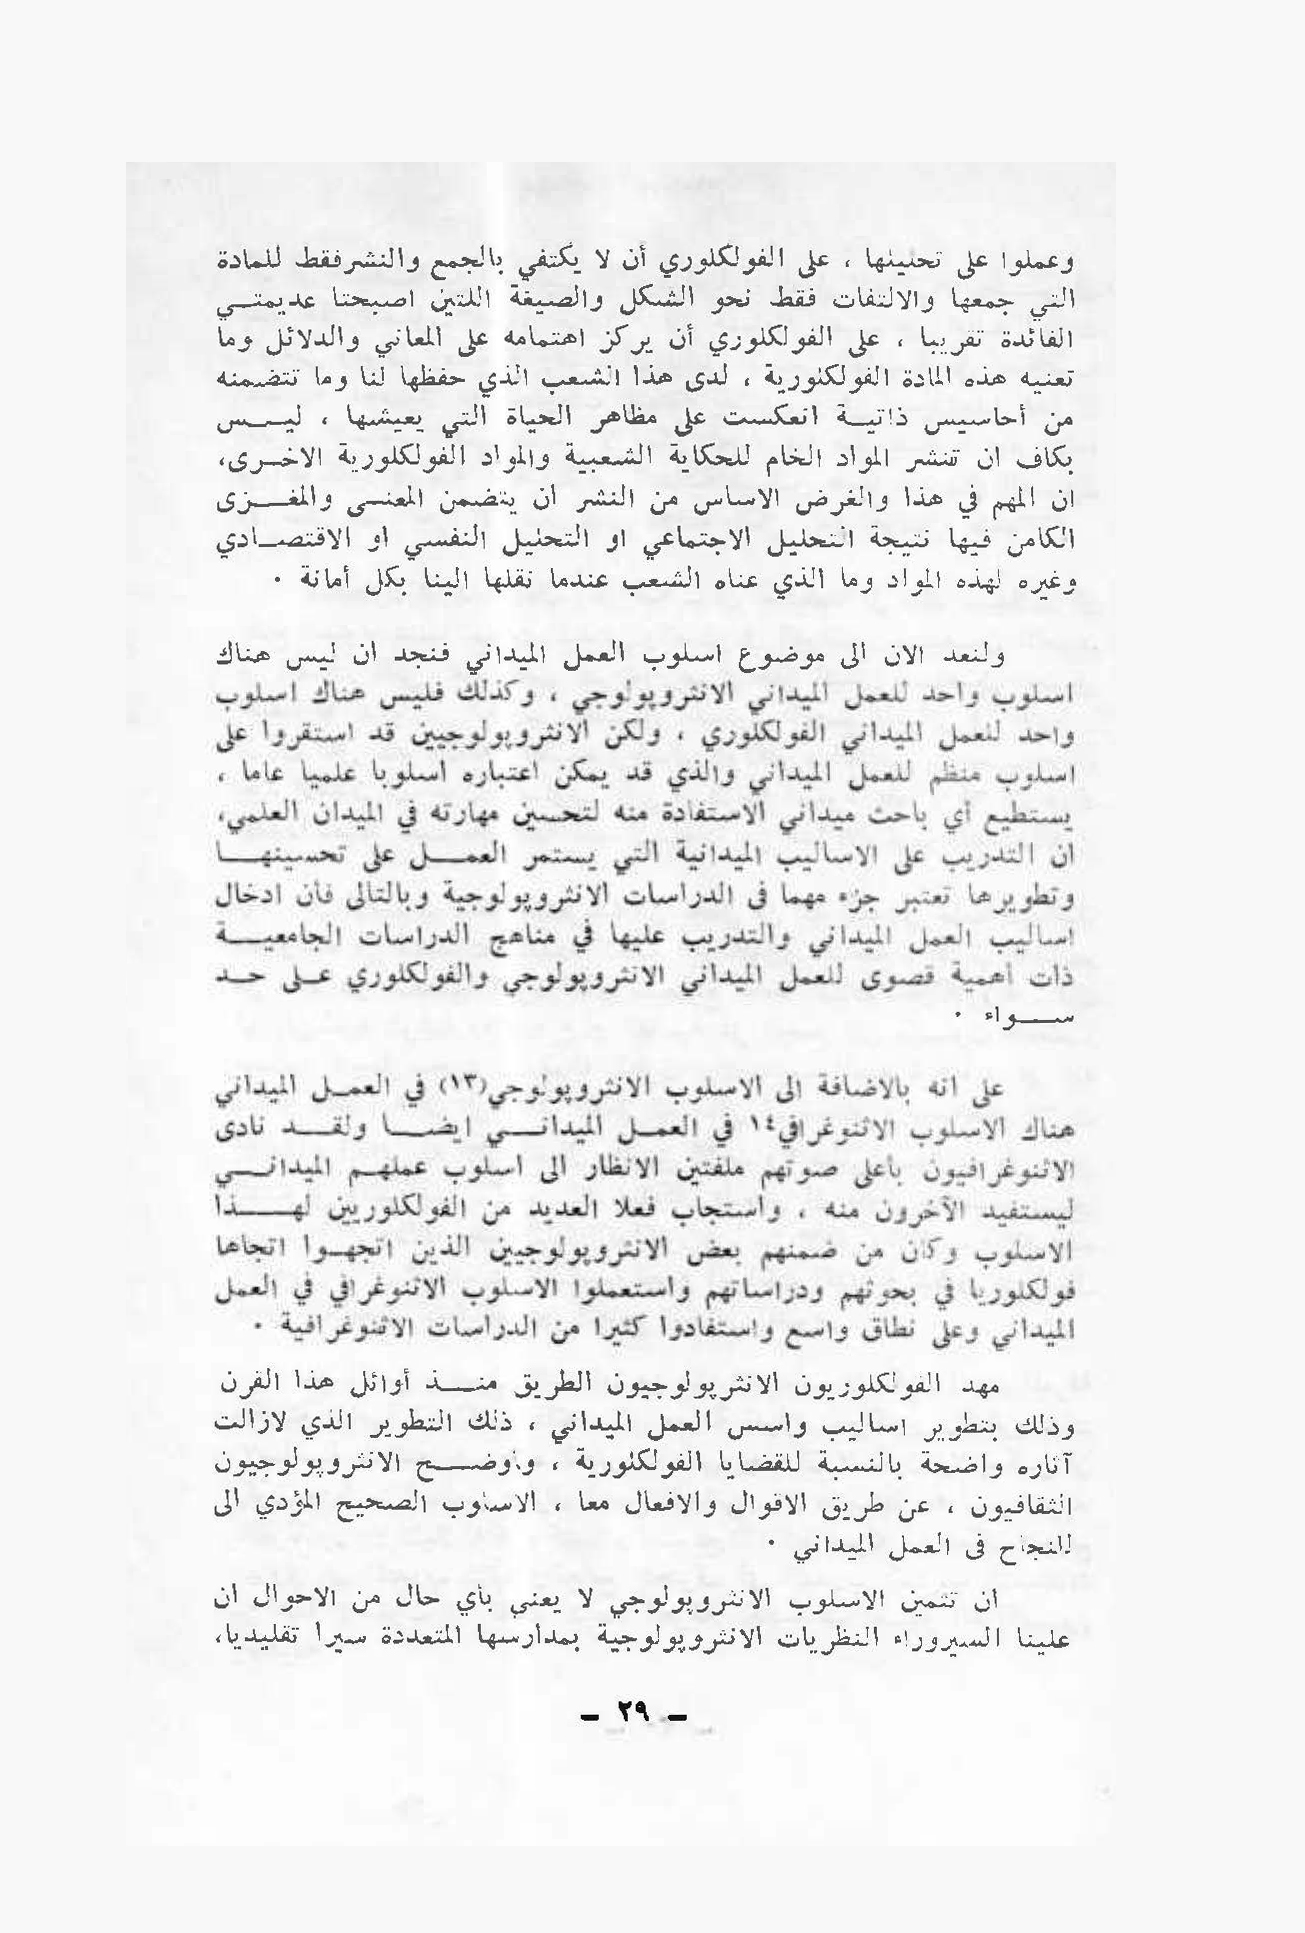 وعملوا على تحليلها ، على الفولكلوري أن لا يكتفي بالجمع والنشر فقط للمادة
التي جمعها والالتفات فقط نحو الشكل والصيغة اللتين اصبحتا عديمتي
الفائدة تقريبا ، على الفولكلوري أن يركز اهتمامه على المعاني والدلائل وما
تعنيه هذه المادة الفولكلورية ، لدى هذا الشعب الذي حفظها لنا وما تتضمنه
من أحاسيس ذاتية انعكست على مظاهر الحياة التي يعيشها ، ليس
بكاف ان تنشر المواد الخام للحكاية الشعبية والمواد الفولكلورية الاخرى،
ان المهم في هذا والغرض الاساس من النشر ان يتضمن المعنى والمغزى
الكامن فيها نتيجة التحليل الاجتماعي او التحليل النفسي او الاقتصادي
وغيره لهذه المواد وما الذي عناه الشعب عندما نقلها الينا بكل أمانة .
ولنعد الان الى موضوع اسلوب العمل الميداني فنجد ان ليس هناك
اسلوب واحد للعمل الميداني الانثروپولوجي ، وكذلك فليس هناك اسلوب
واحد للعمل الميداني الفولكلوري ، ولكن الانثروپولوجيين قد استقروا على
اسلوب منظم للعمل الميداني والذي قد يمكن اعتباره اسلوبا علميا عاما ،
يستطيع أي باحث ميداني الاستفادة منه لتحسين مهارته في الميدان العلمي،
ان التدريب على الاساليب الميدانية التي يستمر العمل على تحسينها
وتطويرها تعتبر جزء مهما فى الدراسات الانثروپولوجية وبالتالى فأن ادخال
اساليب العمل الميداني والتدريب عليها في مناهج الدراسات الجامعية
ذات اهمية قصوى للعمل الميداني الانثروپولوجي والفولكلوري على حد
سواء .
على انه بالاضافة الى الاسلوب الانثروپولوجي(١٣) في العمل الميداني
هناك الاسلوب الاثنوغرافي١٤ في العمل الميداني ايضا ولقد نادى
الاثنوغرافيون بأعلى صوتهم ملفتين الانظار الى اسلوب عملهم الميداني
ليستفيد الآخرون منه ، واستجاب فعلا العديد من الفولكلوريين لهذا
الاسلوب وكان من ضمنهم بعض الانثروپولوجيين الذين اتجهوا اتجاها
فولكلوريا في بحوثهم ودراساتهم واستعملوا الاسلوب الاثنوغرافي في العمل
الميداني وعلى نطاق واسع واستفادوا كثيرا من الدراسات الاثنوغرافية .
مهد الفولكلوريون الانثرپولوجيون الطريق منذ أوائل هذا القرن
وذلك بتطوير اساليب واسس العمل الميداني ، ذلك التطوير الذي لازالت
آثاره واضحة بالنسبة للقضايا الفولكلورية ، واوضح الانثروپولوجيون
الثقافيون ، عن طريق الاقوال والافعال معا ، الاسلوب الصحيح المؤدي الى
النجاح فى العمل الميداني .
ان تثمين الاسلوب الانثروپولوجي لا يعني بأي حال من الاحوال ان
علينا السير وراء النظريات الانثروپولوجية بمدارسها المتعددة سيرا تقليديا،
– ٢٩ –